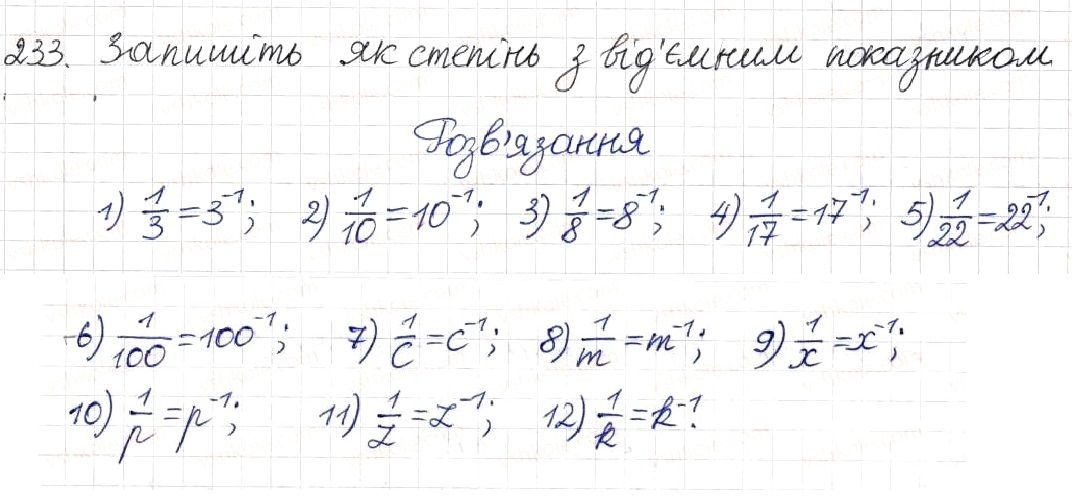 233. Запишіть як степінь з від'ємним показником
Розв'язання
1) 1/3 = 3⁻¹; 2) 1/10 = 10⁻¹; 3) 1/8 = 8⁻¹; 4) 1/17 = 17⁻¹; 5) 1/22 = 22⁻¹;
6) 1/100 = 100⁻¹; 7) 1/c = c⁻¹; 8) 1/m = m⁻¹; 9) 1/x = x⁻¹;
10) 1/p = p⁻¹; 11) 1/z = z⁻¹; 12) 1/k = k⁻¹.